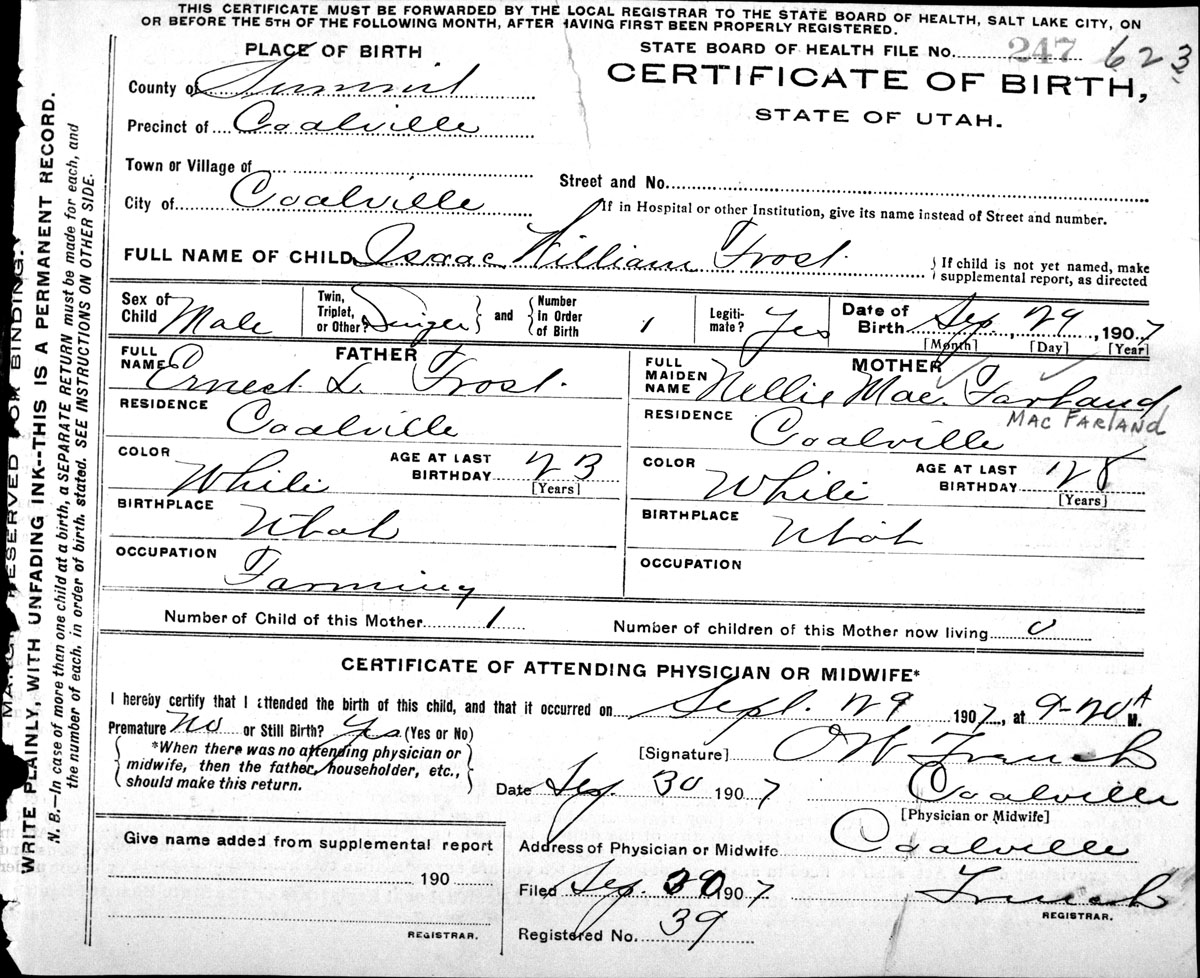 THIS CERTIFICATE MUST BE FORWARDED BY THE LOCAL REGISTRAR TO THE STATE BOARD OF HEALTH, SALT LAKE CITY, ON
OR BEFORE THE 5TH OF THE FOLLOWING MONTH, AFTER HAVING FIRST BEEN PROPERLY REGISTERED.
PLACE OF BIRTH
STATE BOARD OF HEALTH FILE No. 247 623
County of Summit
CERTIFICATE OF BIRTH,
Precinct of Coalville
STATE OF UTAH.
Town or Village of
Street and No.
City of Coalville
If in Hospital or other Institution, give its name instead of Street and number.
FULL NAME OF CHILD Isaac William Frost
If child is not yet named, make
supplemental report, as directed
Sex of Child Male
Twin, Triplet, or Other?
and
Number in Order of Birth 1
Legiti-mate? Yes
Date of Birth Sep. 29, 1907
[Month] [Day] [Year]
FATHER
FULL NAME Ernest L. Frost.
RESIDENCE
Coalville
COLOR White
AGE AT LAST BIRTHDAY 23
[Years]
BIRTHPLACE Utah
OCCUPATION
Farming
MOTHER
FULL MAIDEN NAME Nellie Mac. Farland
MAC FARLAND
RESIDENCE Coalville
COLOR White
AGE AT LAST BIRTHDAY 28
[Years]
BIRTHPLACE
Utah
OCCUPATION
Number of Child of this Mother 1
Number of children of this Mother now living 0
CERTIFICATE OF ATTENDING PHYSICIAN OR MIDWIFE*
I hereby certify that I attended the birth of this child, and that it occurred on Sept. 29 1907, at 9-20 A M.
Premature No or Still Birth? Yes (Yes or No)
*When there was no attending physician or
midwife, then the father, householder, etc.,
should make this return.
[Signature] O W French
Date Sep. 30 1907 Coalville
[Physician or Midwife]
Give name added from supplemental report
190
REGISTRAR.
Address of Physician or Midwife Coalville
Filed Sep. 30 1907 French
REGISTRAR.
Registered No. 39
RESERVED FOR BINDING.
WRITE PLAINLY, WITH UNFADING INK--THIS IS A PERMANENT RECORD.
N. B.—In case of more than one child at a birth, a SEPARATE RETURN must be made for each, and
the number of each, in order of birth, stated. SEE INSTRUCTIONS ON OTHER SIDE.